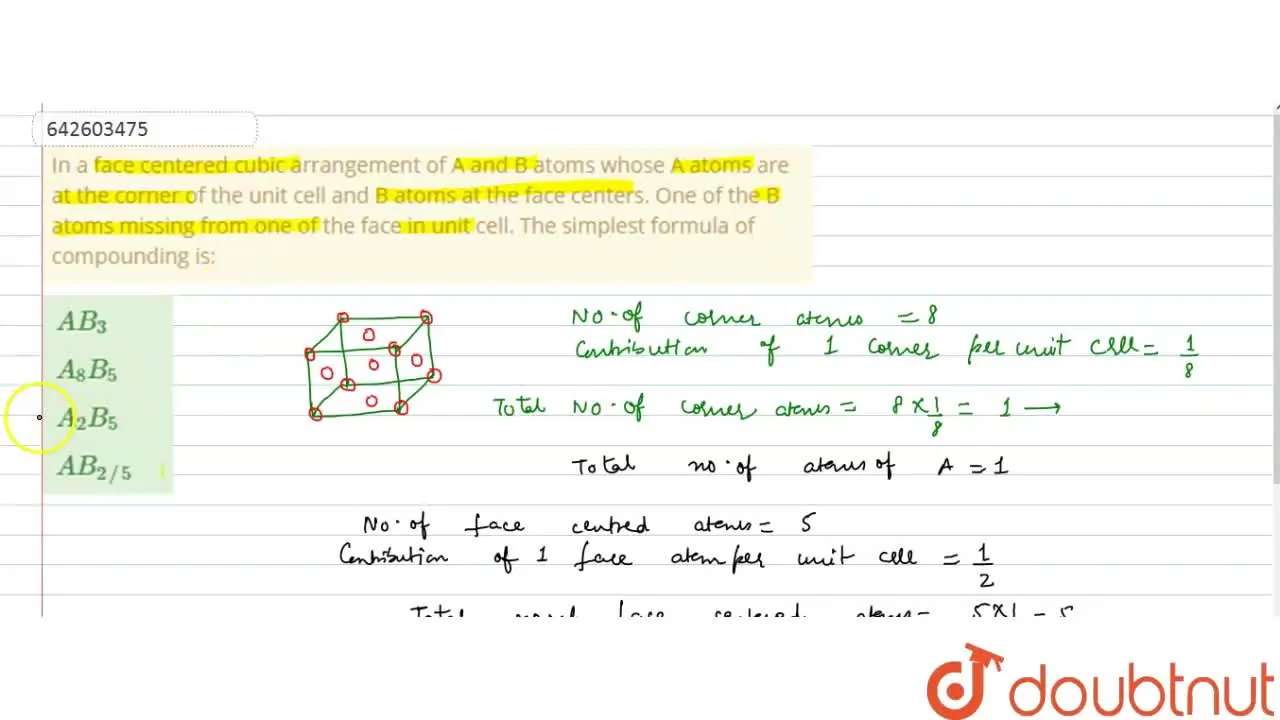 642603475
In a face centered cubic arrangement of A and B atoms whose A atoms are
at the corner of the unit cell and B atoms at the face centers. One of the B
atoms missing from one of the face in unit cell. The simplest formula of
compounding is:
AB₃
A₈B₅
A₂B₅
AB₂/₅
No. of corner atoms = 8
Contribution of 1 corner per unit cell = 1/8
Total No. of corner atoms = 8 × 1/8 = 1 →
Total no. of atoms of A = 1
No. of face centred atoms = 5
Contribution of 1 face atom per unit cell = 1/2
Total face centered atoms =
doubtnut